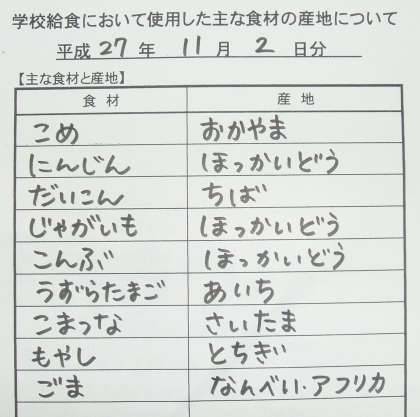 学校給食において使用した主な食材の産地について
平成 27 年 11 月 2 日分
【主な食材と産地】
食材 産地
こめ おかやま
にんじん ほっかいどう
だいこん ちば
じゃがいも ほっかいどう
こんぶ ほっかいどう
うずらたまご あいち
こまつな さいたま
もやし とちぎ
ごま なんべい・アフリカ